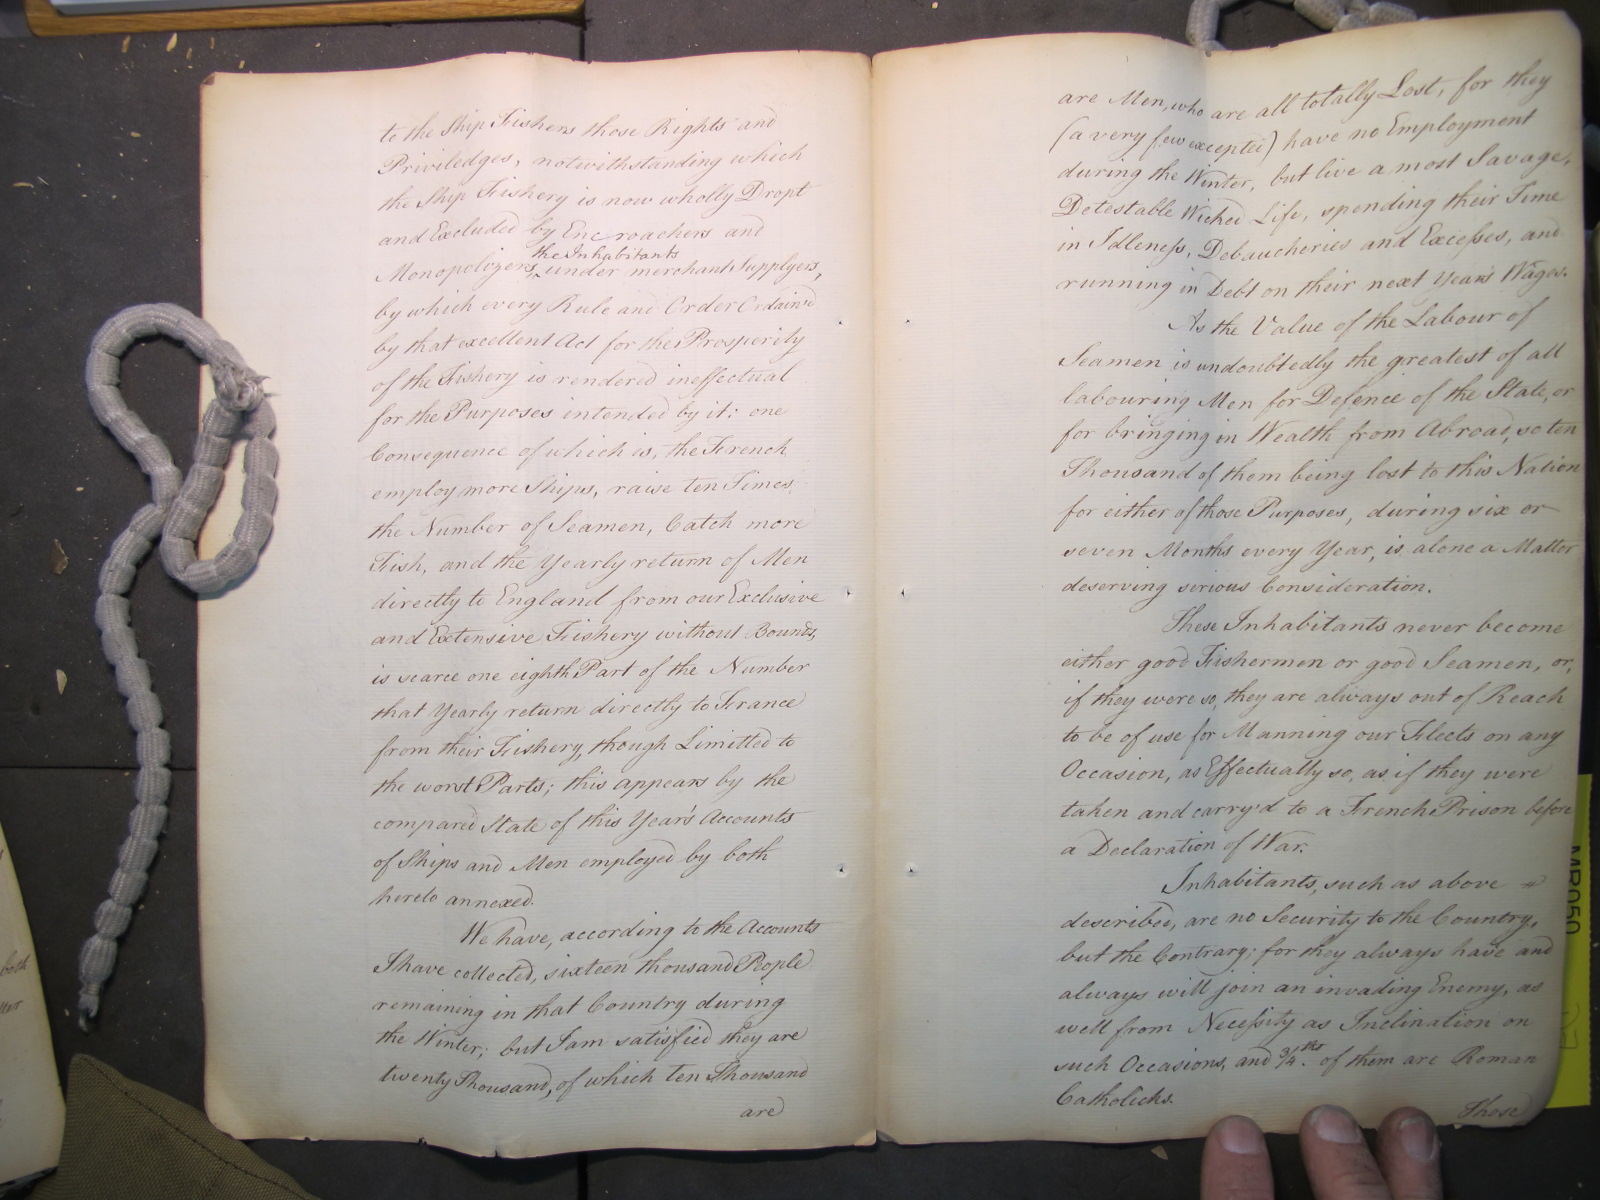 to the Ship Fishers those Rights and
Priviledges, notwithstanding which
the Ship Fishery is now wholly Dropt
and Excluded by Encroachers and
the Inhabitants
Monopolizers, under merchant Supplyers,
by which every Rule and Order Ordain'd
by that excellent Act for the Prosperity
of the Fishery is rendered ineffectual
for the Purposes intended by it: one
Consequence of which is, the French
employ more Ships, raise ten Times
the Number of Seamen, Catch more
Fish, and the Yearly return of Men
directly to England from our Exclusive
and Extensive Fishery without Bounds,
is scarce one eighth Part of the Number
that Yearly return directly to France
from their Fishery, though Limitted to
the worst Parts; this appears by the
compared State of this Year's Accounts
of Ships and Men employed by both
hereto annexed.
We have, according to the Accounts
I have collected, sixteen thousand People
remaining in that Country during
the Winter; but I am satisfied they are
twenty Thousand, of which ten Thousand
are
are Men, who are all totally Lost, for they
(a very few excepted) have no Employment
during the Winter, but live a most Savage,
Detestable Wicked Life, spending their Time
in Idleness, Debaucheries and Excesses, and
running in Debt on their next Year's Wages.
As the Value of the Labour of
Seamen is undoubtedly the greatest of all
labouring Men for Defence of the State, or
for bringing in Wealth from Abroad, so ten
Thousand of them being lost to this Nation
for either of those Purposes, during six or
seven Months every Year, is alone a Matter
deserving serious Consideration.
These Inhabitants never become
either good Fishermen or good Seamen, or,
if they were so, they are always out of Reach
to be of use for Manning our Fleets on any
Occasion, as Effectually so, as if they were
taken and carry'd to a French Prison before
a Declaration of War.
Inhabitants, such as above
described, are no Security to the Country,
but the Contrary; for they always have and
always will join an invading Enemy, as
well from Necessity as Inclination on
such Occasions, and 3/4ths. of them are Roman
Catholicks.
Those
both
MR050